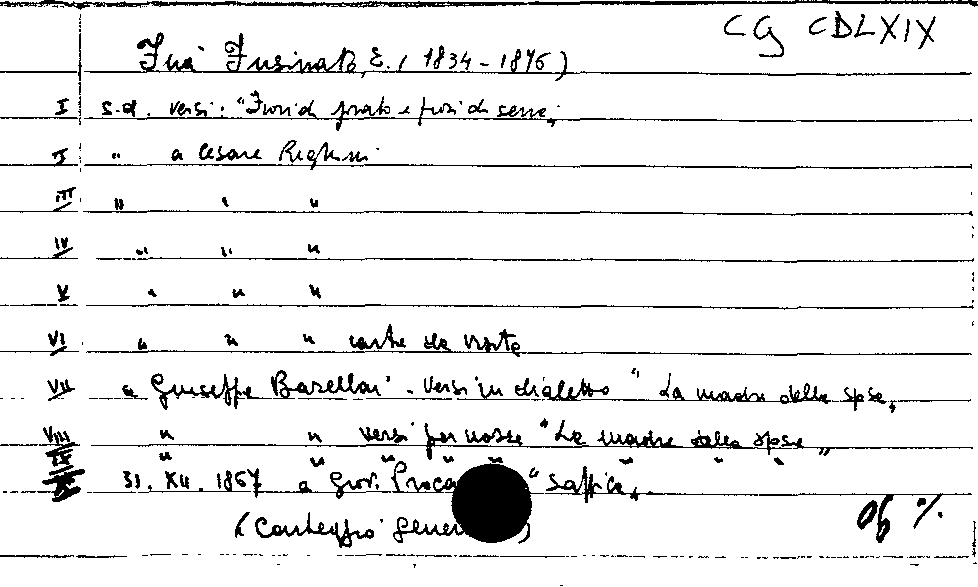 CG CDLXIX
Fuà Fusinato, E. ( 1834 - 1876 )
I s.d. versi: "Fiori di prato e fiori di serra"
II " a Cesare Righini
III " " "
IV " " "
V " " "
VI " " " carte da visita
VII a Giuseppe Barellai - versi in dialetto " La madre della sposa "
VIII " " versi per nozze " La madre della sposa "
IX " " " " " " " "
X 31. XII. 1867 a Giov. " Saffica "
( Carteggio